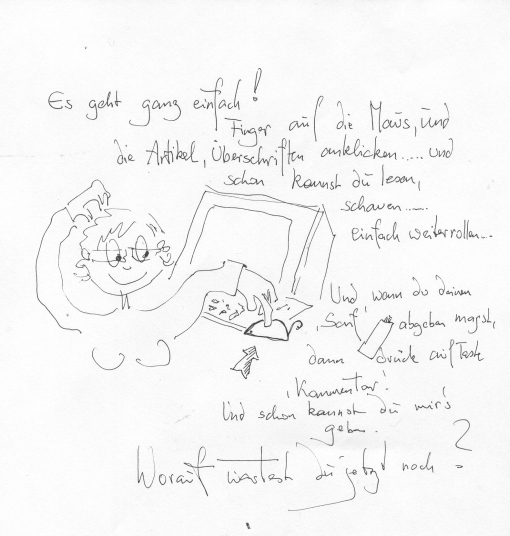 Es geht ganz einfach!
Finger auf die Maus, und
die Artikel, Überschriften anklicken..... und
schon kannst du lesen,
schauen.....
einfach weiterrollen...
Und, wenn du deinen
'Senf' abgeben magst,
dann drück auf Taste
'Kommentar'.
Und schon kannst du mir's
geben.
Worauf wartest du jetzt noch?